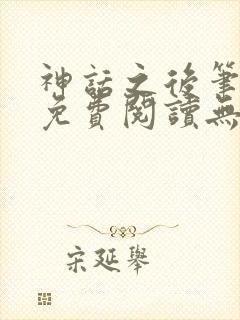 神話之後筆
免費閱讀無
宋延舉